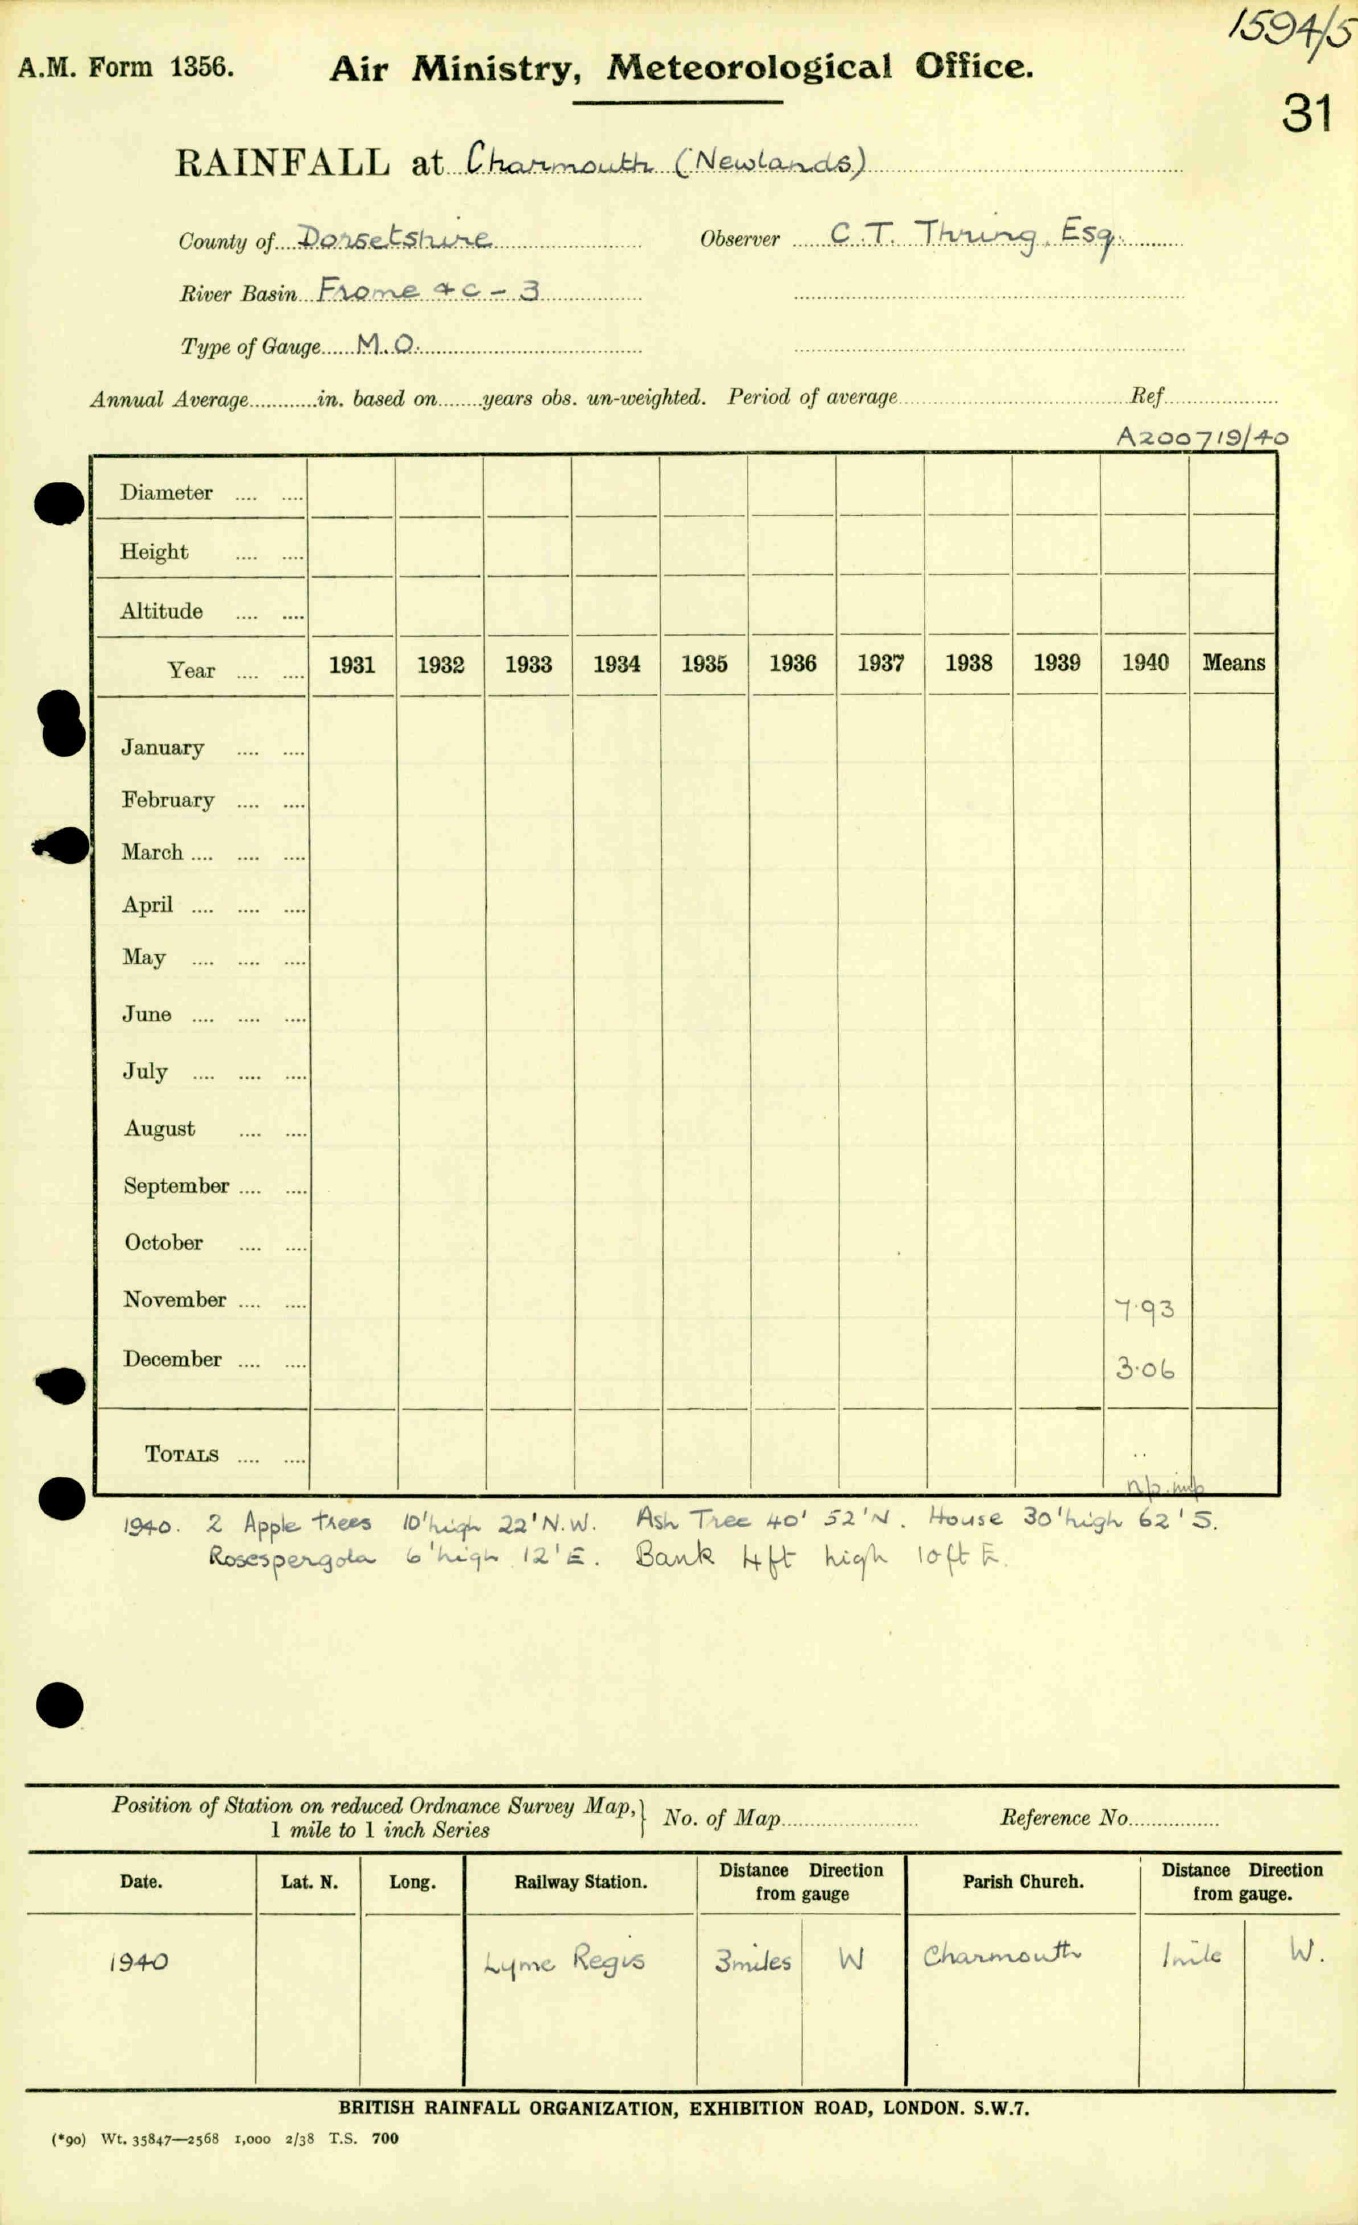 1594/5
A.M. Form 1356. Air Ministry, Meteorological Office.
31
RAINFALL at Charmouth (Newlands)
County of Dorsetshire Observer C.T. Thring. Esq.
River Basin Frome &c - 3
Type of Gauge M.O.
Annual Average............in. based on........years obs. un-weighted. Period of average Ref
A200719/40
Diameter .... ....
Height .... ....
Altitude .... ....
Year .... .... 1931 1932 1933 1934 1935 1936 1937 1938 1939 1940 Means
January .... ....
February .... ....
March .... .... ....
April .... .... ....
May .... .... ....
June .... .... ....
July .... .... ....
August .... ....
September .... ....
October .... ....
November .... .... 7.93
December .... .... 3.06
TOTALS .... .... ..
n/p. imp
1940. 2 Apple trees 10'high 22'N.W. Ash Tree 40' 52'N. House 30'high 62'S.
Rosespergola 6'high 12'E. Bank 4ft high 10ft E.
Position of Station on reduced Ordnance Survey Map, } No. of Map Reference No.
1 mile to 1 inch Series
Date. Lat. N. Long. Railway Station. Distance Direction from gauge Parish Church. Distance Direction from gauge.
1940 Lyme Regis 3miles W Charmouth 1mile W.
BRITISH RAINFALL ORGANIZATION, EXHIBITION ROAD, LONDON. S.W.7.
(*90) Wt. 35847—2568 1,000 2/38 T.S. 700